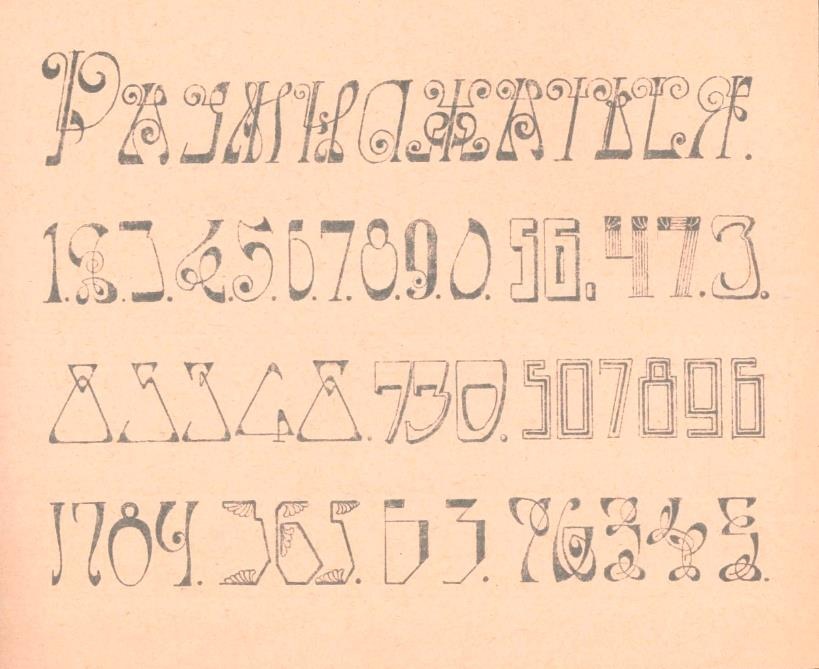 Размножаться.
1.2.3.4.5.6.7.8.9.0. 56. 47.3.
85348. 730. 507896
1784. 365. 63. 76345.